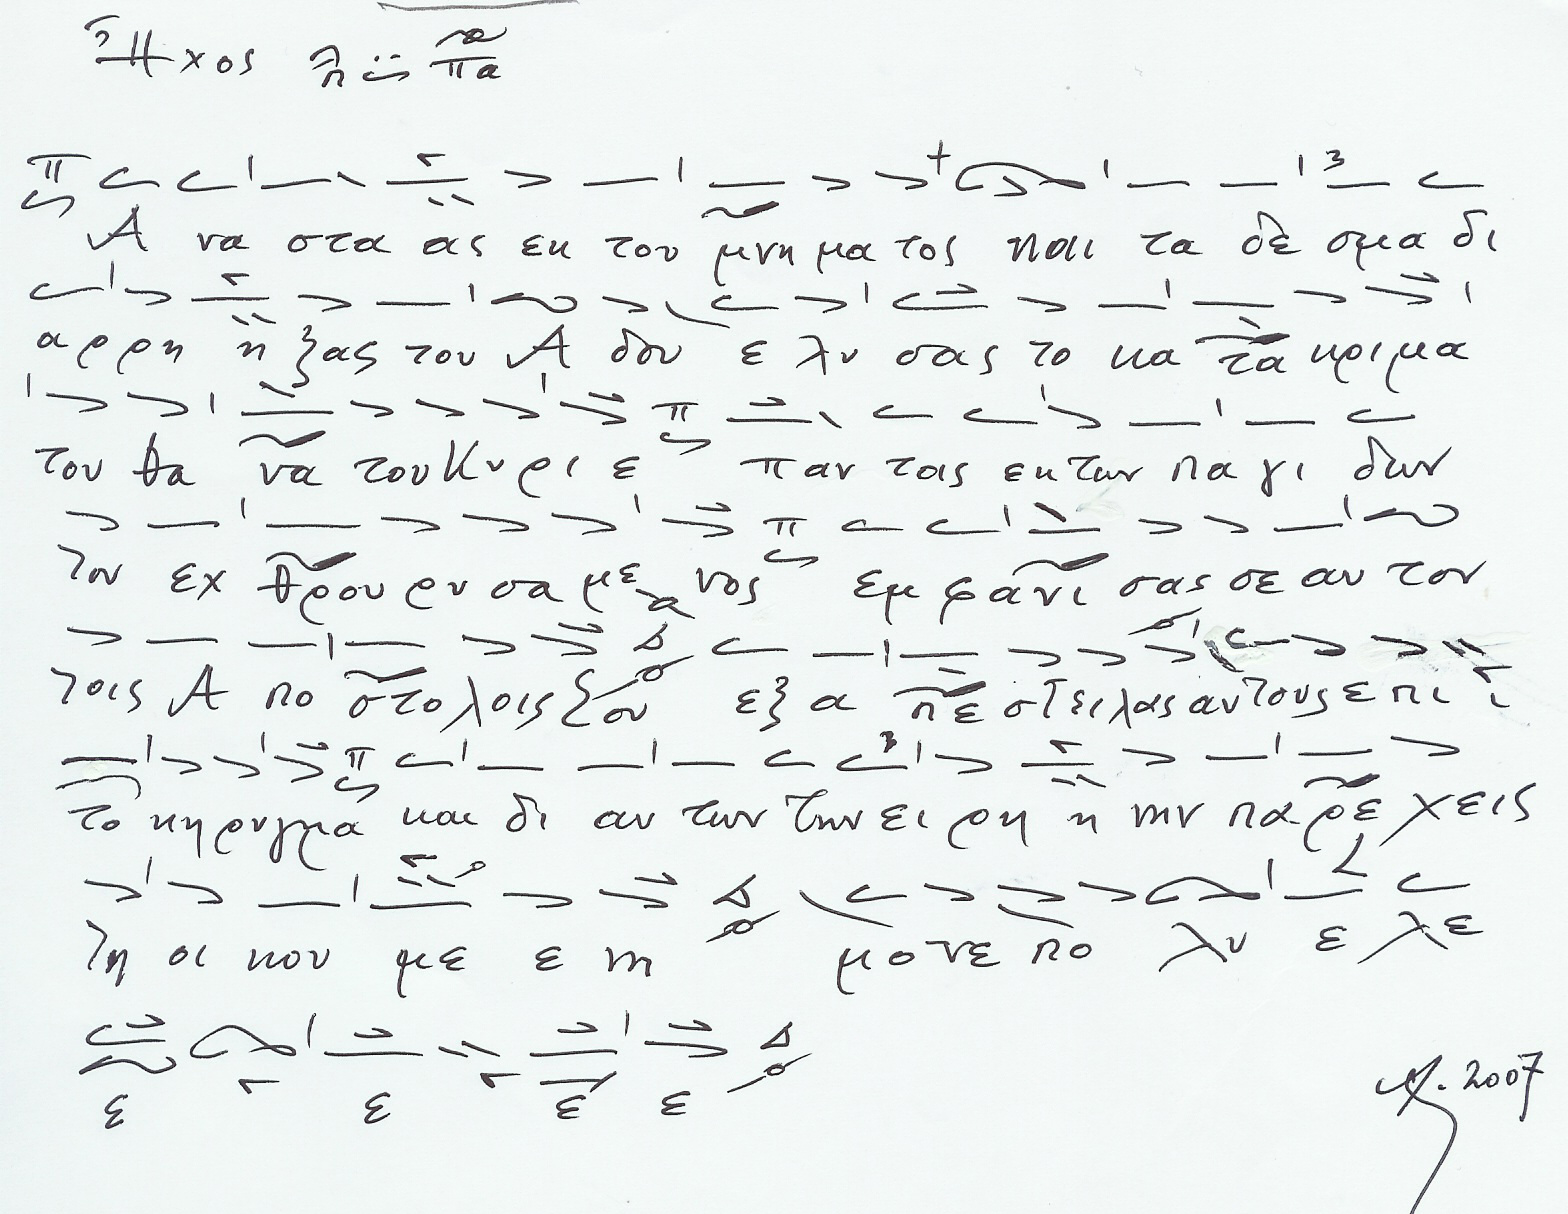 Ἦχος λ π ᾳ Πα
Α να στα ας εκ του μνη μα τος και τα δε σμα δι
αρρη η ξας του Α δου ε λυ σας το κα τα κριμα
του θα να του Κυ ρι ε παν τας εκ των πα γι δων
του εχ θρου ρυ σα με νος εμ φανι σας σε αυ τον
τοις Α πο στο λοις σου εξ α πε στειλας αυτους ε πι ι
το κηρυγμα και δι αυ των την ει ρη η νην παρε χεις
τη οι κου με ε νη μο νε πο λυ ε λε
ε ε ε ε
2007